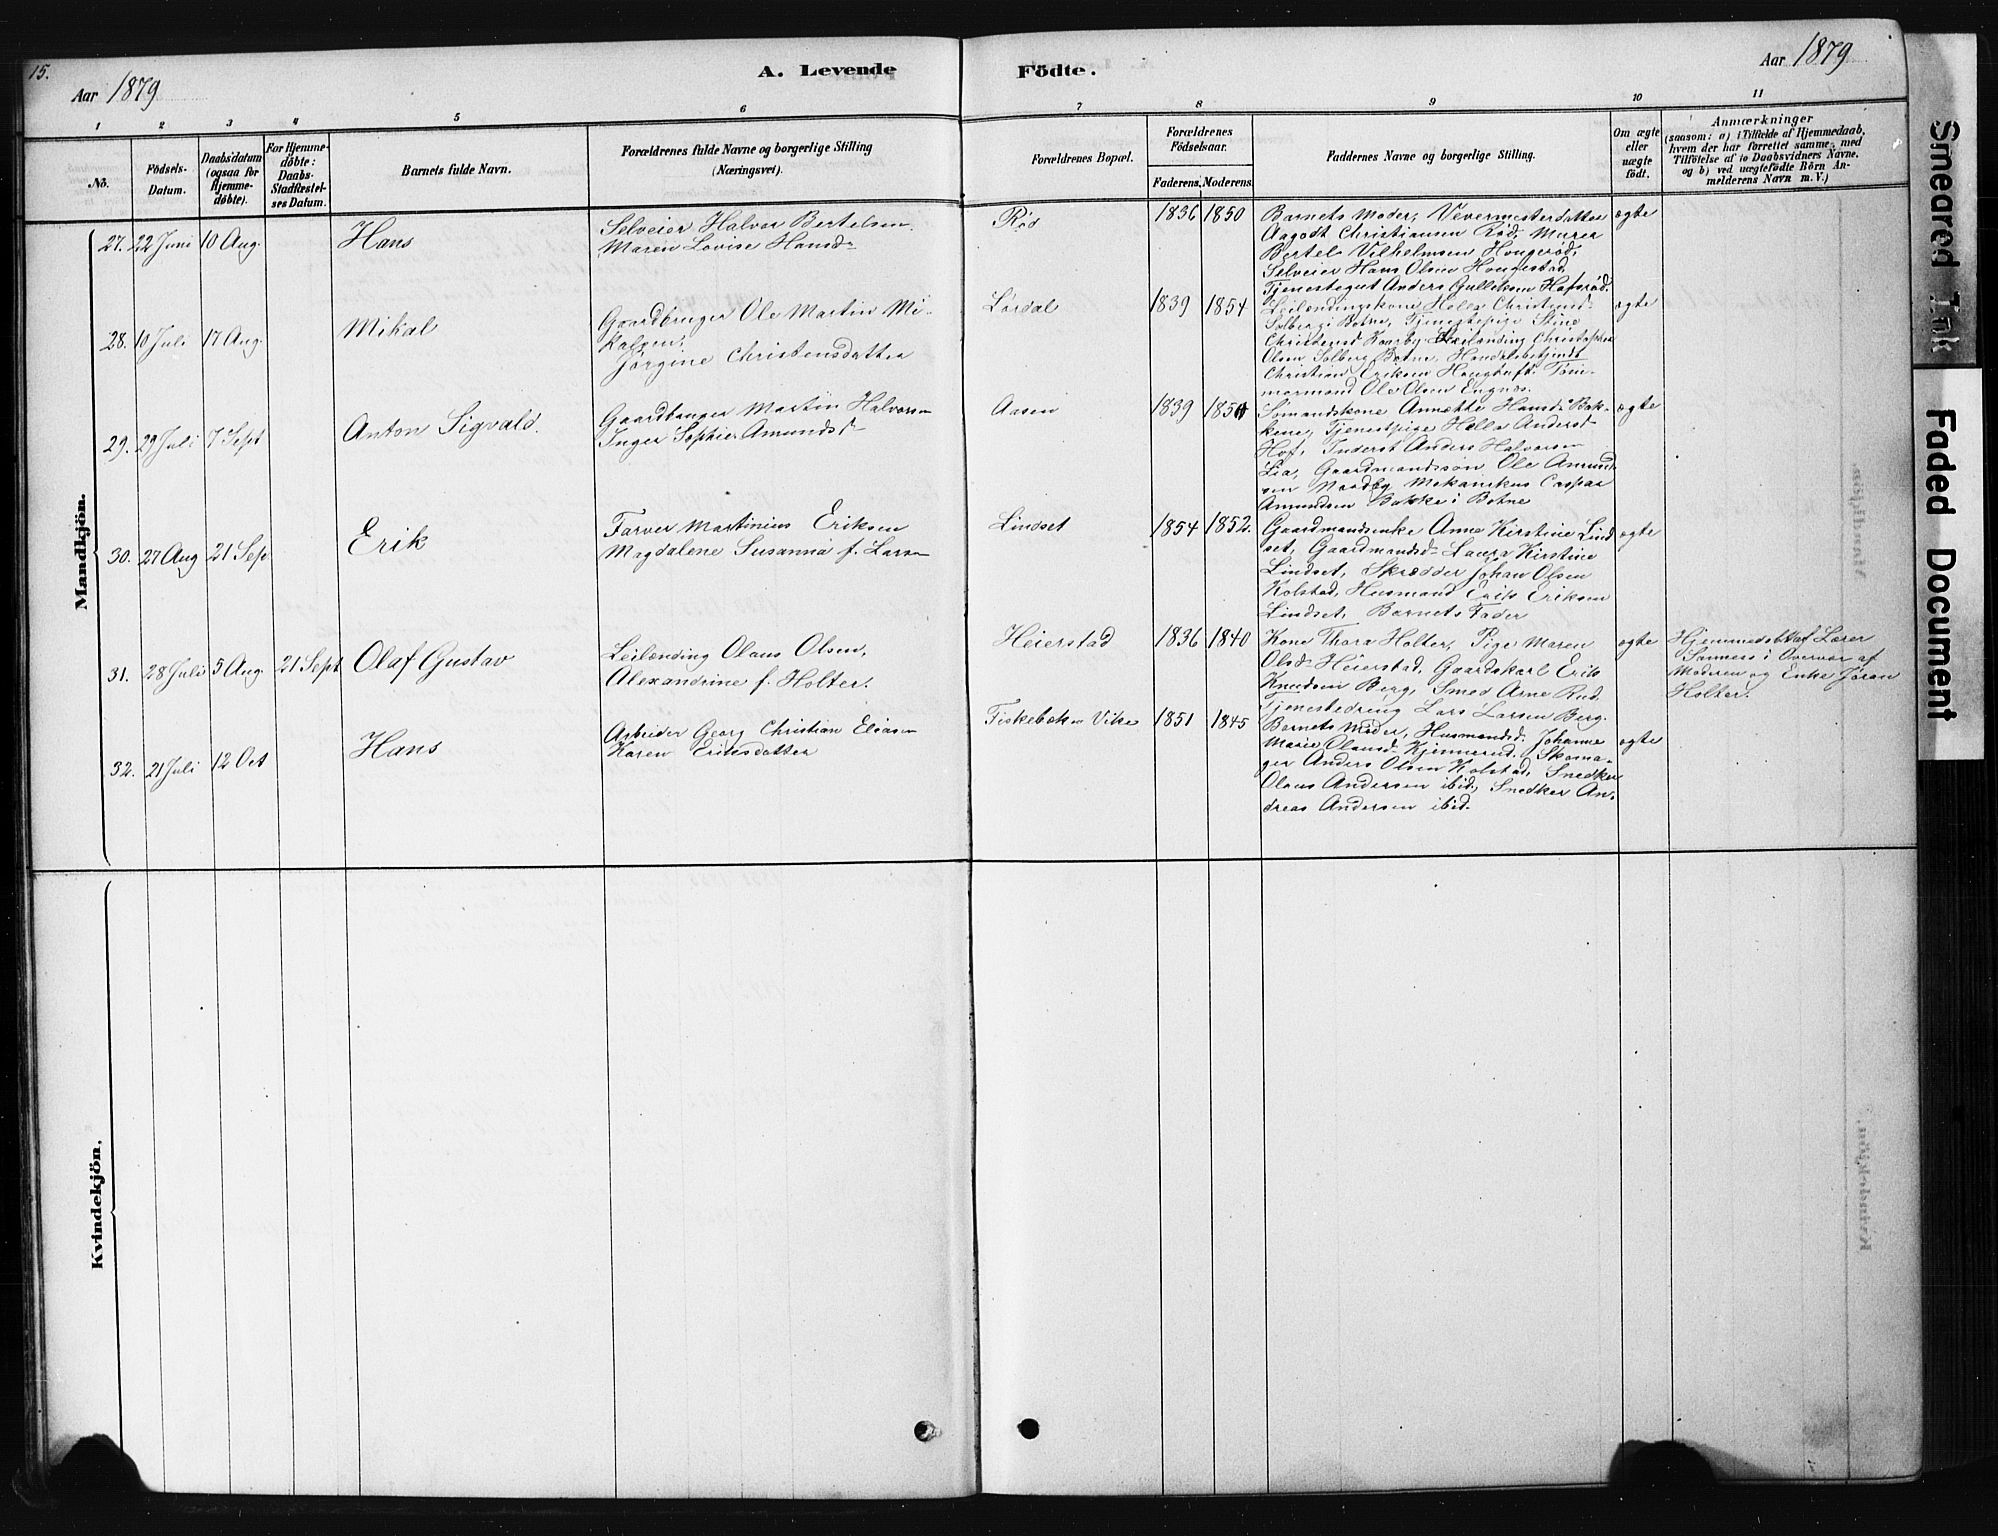 15.
Aar 1879
A. Levende
Födte.
Aar 1879
1 2 3 4 5 6 7 8 9 10 11
No.
Födsels-
Datum.
Daabsdatum
(ogsaa for
Hjemme-
døbte).
For Hjemme-
døbte:
Daabs-
Stadfæstel-
ses Datum.
Barnets fulde Navn.
Forældrenes fulde Navne og borgerlige Stilling
(Næringsvei).
Forældrenes Bopæl.
Forældrenes
Födselsaar.
Faderens. Moderens.
Faddernes Navne og borgerlige Stilling.
Om ægte
eller
uægte
født.
Anmærkninger
(saasom: a) i Tilfælde af Hjemmedaab,
hvem der har forrettet samme, med
Tilføielse af to Daabsvidners Navne,
og b) ved uægtefødte Börn An-
melderens Navn m. V.)
Mandkjön.
27. 22 Juni 10 Aug. Hans
Selveier Halvor Bertelsen.
Maren Lovise Hansd-
Rød 1836 1850
Barnets Moder, Vevermesterdatter
Aagodt Christiansen Rød, Murer
Bertel Vilhelmsen Hongerød,
Selveier Hans Olsen Hongestad,
Tjenestegut Anders Gulleksen Hafsrød.
ægte
28. 10 Juli 17 Aug. Mikal
Gaardbruger Ole Martin Mi-
kalsen,
Jørgine Christensdatter
Lørdal 1839 1854
Leilændingskone Helle Christensd-
Solberg i Botne, Tjenestepige Stine
Christensd Kaarby, Leilænding Christopher
Olsen Solberg Botne, Handelsbetjendt
Christian Eriksen Hougtuft. Tøm-
mermand Ole Olsen Engnæs.
ægte
29. 29 Juli 7 Sept Anton Sigvald.
Gaardbruger Martin Halvorsen
Inger Sophie Amundsd-
Aasen 1839
Sømandskone Annette Hansd- Bak-
kene, Tjenestpige Helle Andersd-
Hof, Inderst Anders Halvorsen
Lia, Gaardmandssøn Ole Amund-
sen Nordby, Mekanikus Caspar
Amundsen Bakke i Botne
ægte
30. 27 Aug 21 Sep Erik
Farver Martinius Eriksen
Magdalene Susanna f. Larsen
Lindset 1854 1852.
Gaardmandsenke Anne Kirstine Lind
set, Gaardmandsd- Laura Kirstine
Lindset, Skrædder Johan Olsen
Kolstad, Husmand Erik Eriksen
Lindset, Barnets Fader
ægte
31. 28 Juli 5 Aug. 21 Sept Olaf Gustav
Leilænding Olaus Olsen,
Alexandrine f. Holter.
Heierstad 1836 1840
Kone Thora Holter, Pige Maren
Olsd- Heierstad, Gaardskarl Erik
Knudsen Berg, Smed Arne Rud,
Tjenestedreng Lars Larsen Berg.
ægte
Hjemmedøbt af Lærer
Sannes i Overvær af
Moderen og Enke Jøran
Holter.
32. 21 Juli 12 Oct Hans
Arbeider Georg Christian Eliasen
Karen Eriksdatter
Fiskebæk Vike 1851 1845
Barnets Moder, Husmandsd. Johanne
Marie Olausd- Kjennerud, Skoma-
ger Anders Olsen Kolstad, Snedker
Olaus Andersen ibid, Snedker An-
dreas Andersen ibid.
ægte
Kvindekjön.
Smeared Ink
Faded Document